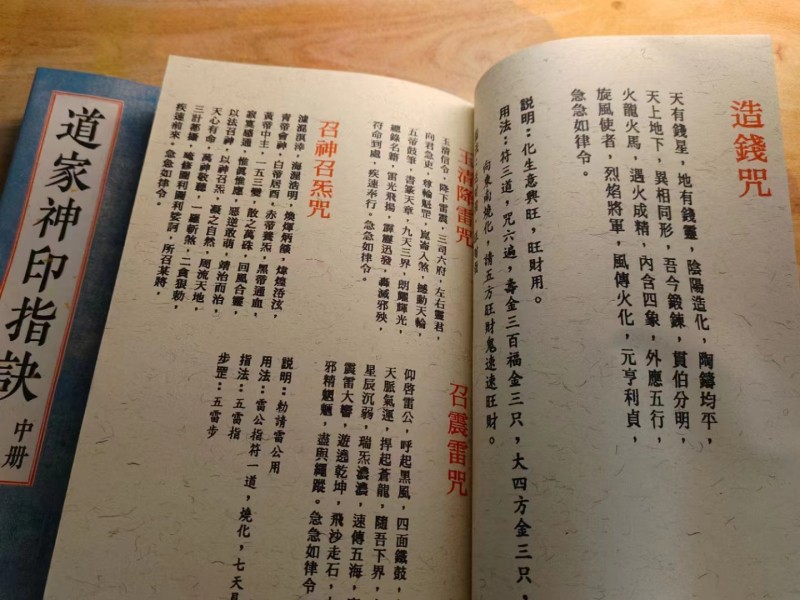 造錢咒
天有錢星，地有錢靈，陰陽造化，陶鑄均平，
天上地下，異相同形，吾今鍛鍊，貫伯分明，
火龍火馬，遇火成精，內含四象，外應五行，
旋風使者，烈焰將軍，風傳火化，元亨利貞，
急急如律令。
說明：化生意興旺，旺財用。
用法：符三道，咒六遍，壽金三百福金三只，大四方金三只，
向東南燒化，請五方旺財鬼速速旺財。
玉清降雷咒
玉清信令，降下雷震，三司六府，左右靈君，
向君急吏，尊輪魁罡，崑崙入煞，撼動天輪，
五帝敕筆，書篆天章，九天三界，朗耀輝光，
總錄名籍，雷光飛揚，霹靂迅發，轟滅邪殃，
符命到處，疾速奉行。急急如律令。
召神召炁咒
青帝會神，白帝居西，赤帝養炁，黑帝通血，
黃帝中主，一五三變，敢之萬硃，回風合靈，
寂寞感通，惟眞惟應，惡逆敢萌，靖治而治，
以法召神，以神召炁，凝之自然，周流天地，
天心有命，萬神敬聽，一羅斬煞，二貪狠勅，
疾速前來。急急如律令。
召震雷咒
仰啓雷公，呼起黑風，四面鐵鼓，
天脈氣運，捍起蒼龍，隨吾下界，
星辰沉弱，瑞炁濃濃，速傳五海，
震雷大響，遊遶乾坤，飛沙走石，
邪精魍魎，盡與繩蹤。急急如律令
說明：勅請雷公用
用法：雷公指符一道，燒化，七天
指法：五雷指
步罡：五雷步
道家神印指訣 中册